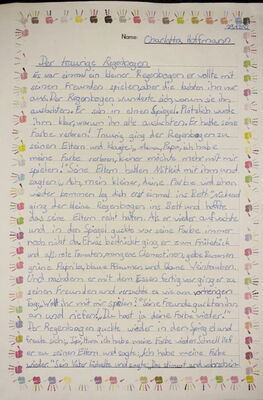 Name: Charlotta Hoffmann
Der traurige Regenbogen
Es war einmal ein kleiner Regenbogen er wollte mit
seinen Freunden spielen, aber die lachten ihn nur
aus. Der Regenbogen wunderte sich, warum sie ihn
auslachten. Er sah in einen Spiegel. Plötzlich wurde
ihm klar, warum ihn alle auslachten. Er hatte seine
Farbe verloren! Traurig ging der Regenbogen zu
seinen Eltern und
meine Farbe verloren, keiner möchte mehr mit mir
spielen." Seine Eltern hatten Mitleid mit ihm und
sagten, Ach, mein kleiner, deine Farbe wird schon
wieder kommen leg dich erst einmal ins Bett."
ging der kleine Regenbogen ins Bett und hoffte
das seine Eltern recht hatten. Als er wieder aufwachte
und in den Spiegel guckte war seine Farbe immer
noch nicht da. Etwas bedrückt ging er zum Frühstück
und aß rote Tomaten, orangene Clementinen, gelbe Bananen
grüne Paprika, blaue Pflaumen und lilane Weintrauben.
Und nachdem er mit dem Essen fertig war ging er zu
seinen Freunden und versuchte es wie am vorherigen
Tag, "Wollt ihr mit mir spielen?" Seine Freunde guckten ihn
an und riefen, "Du hast ja deine Farbe wieder."
Der Regenbogen guckte wieder in den Spiegel und
freute sich,
er zu seinen Eltern und sagte, "Ich habe meine Farbe
wieder." Sein Vater lächelte und sagte, "Das stimmt und